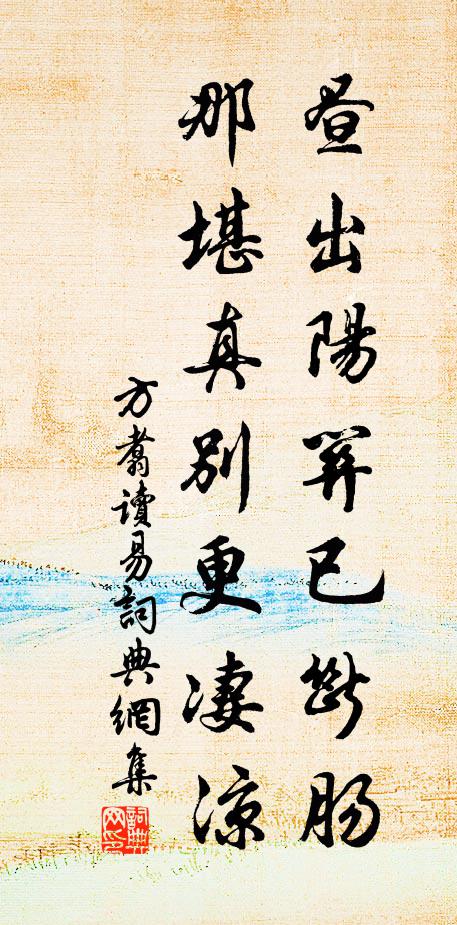 畫出陽關已斷腸
那堪真別更凄涼
方翥讀易詞典網集
詞典網印